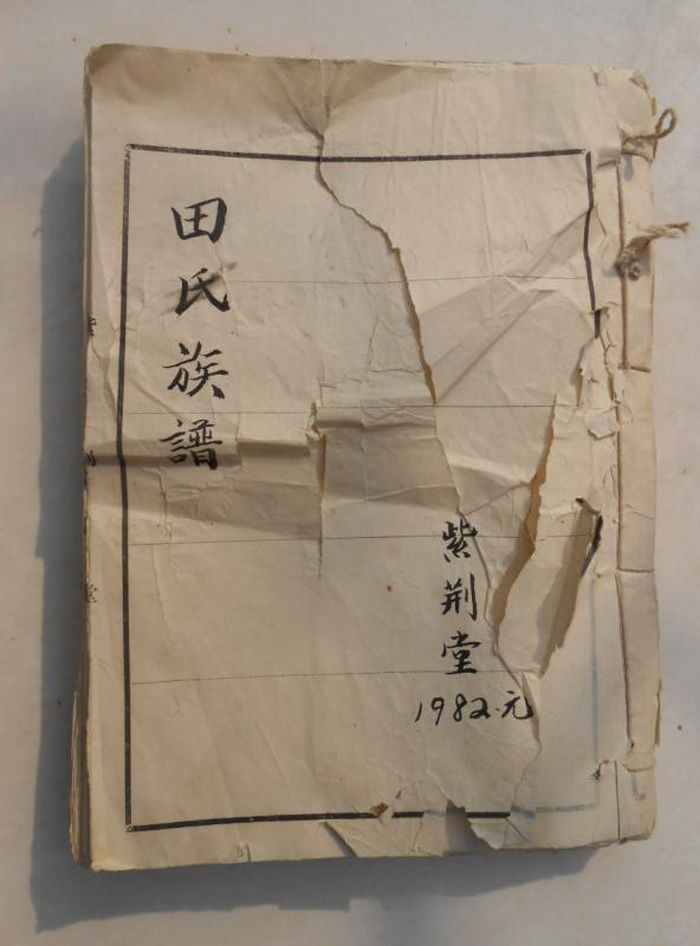 田氏族譜
紫荆堂
1982.元